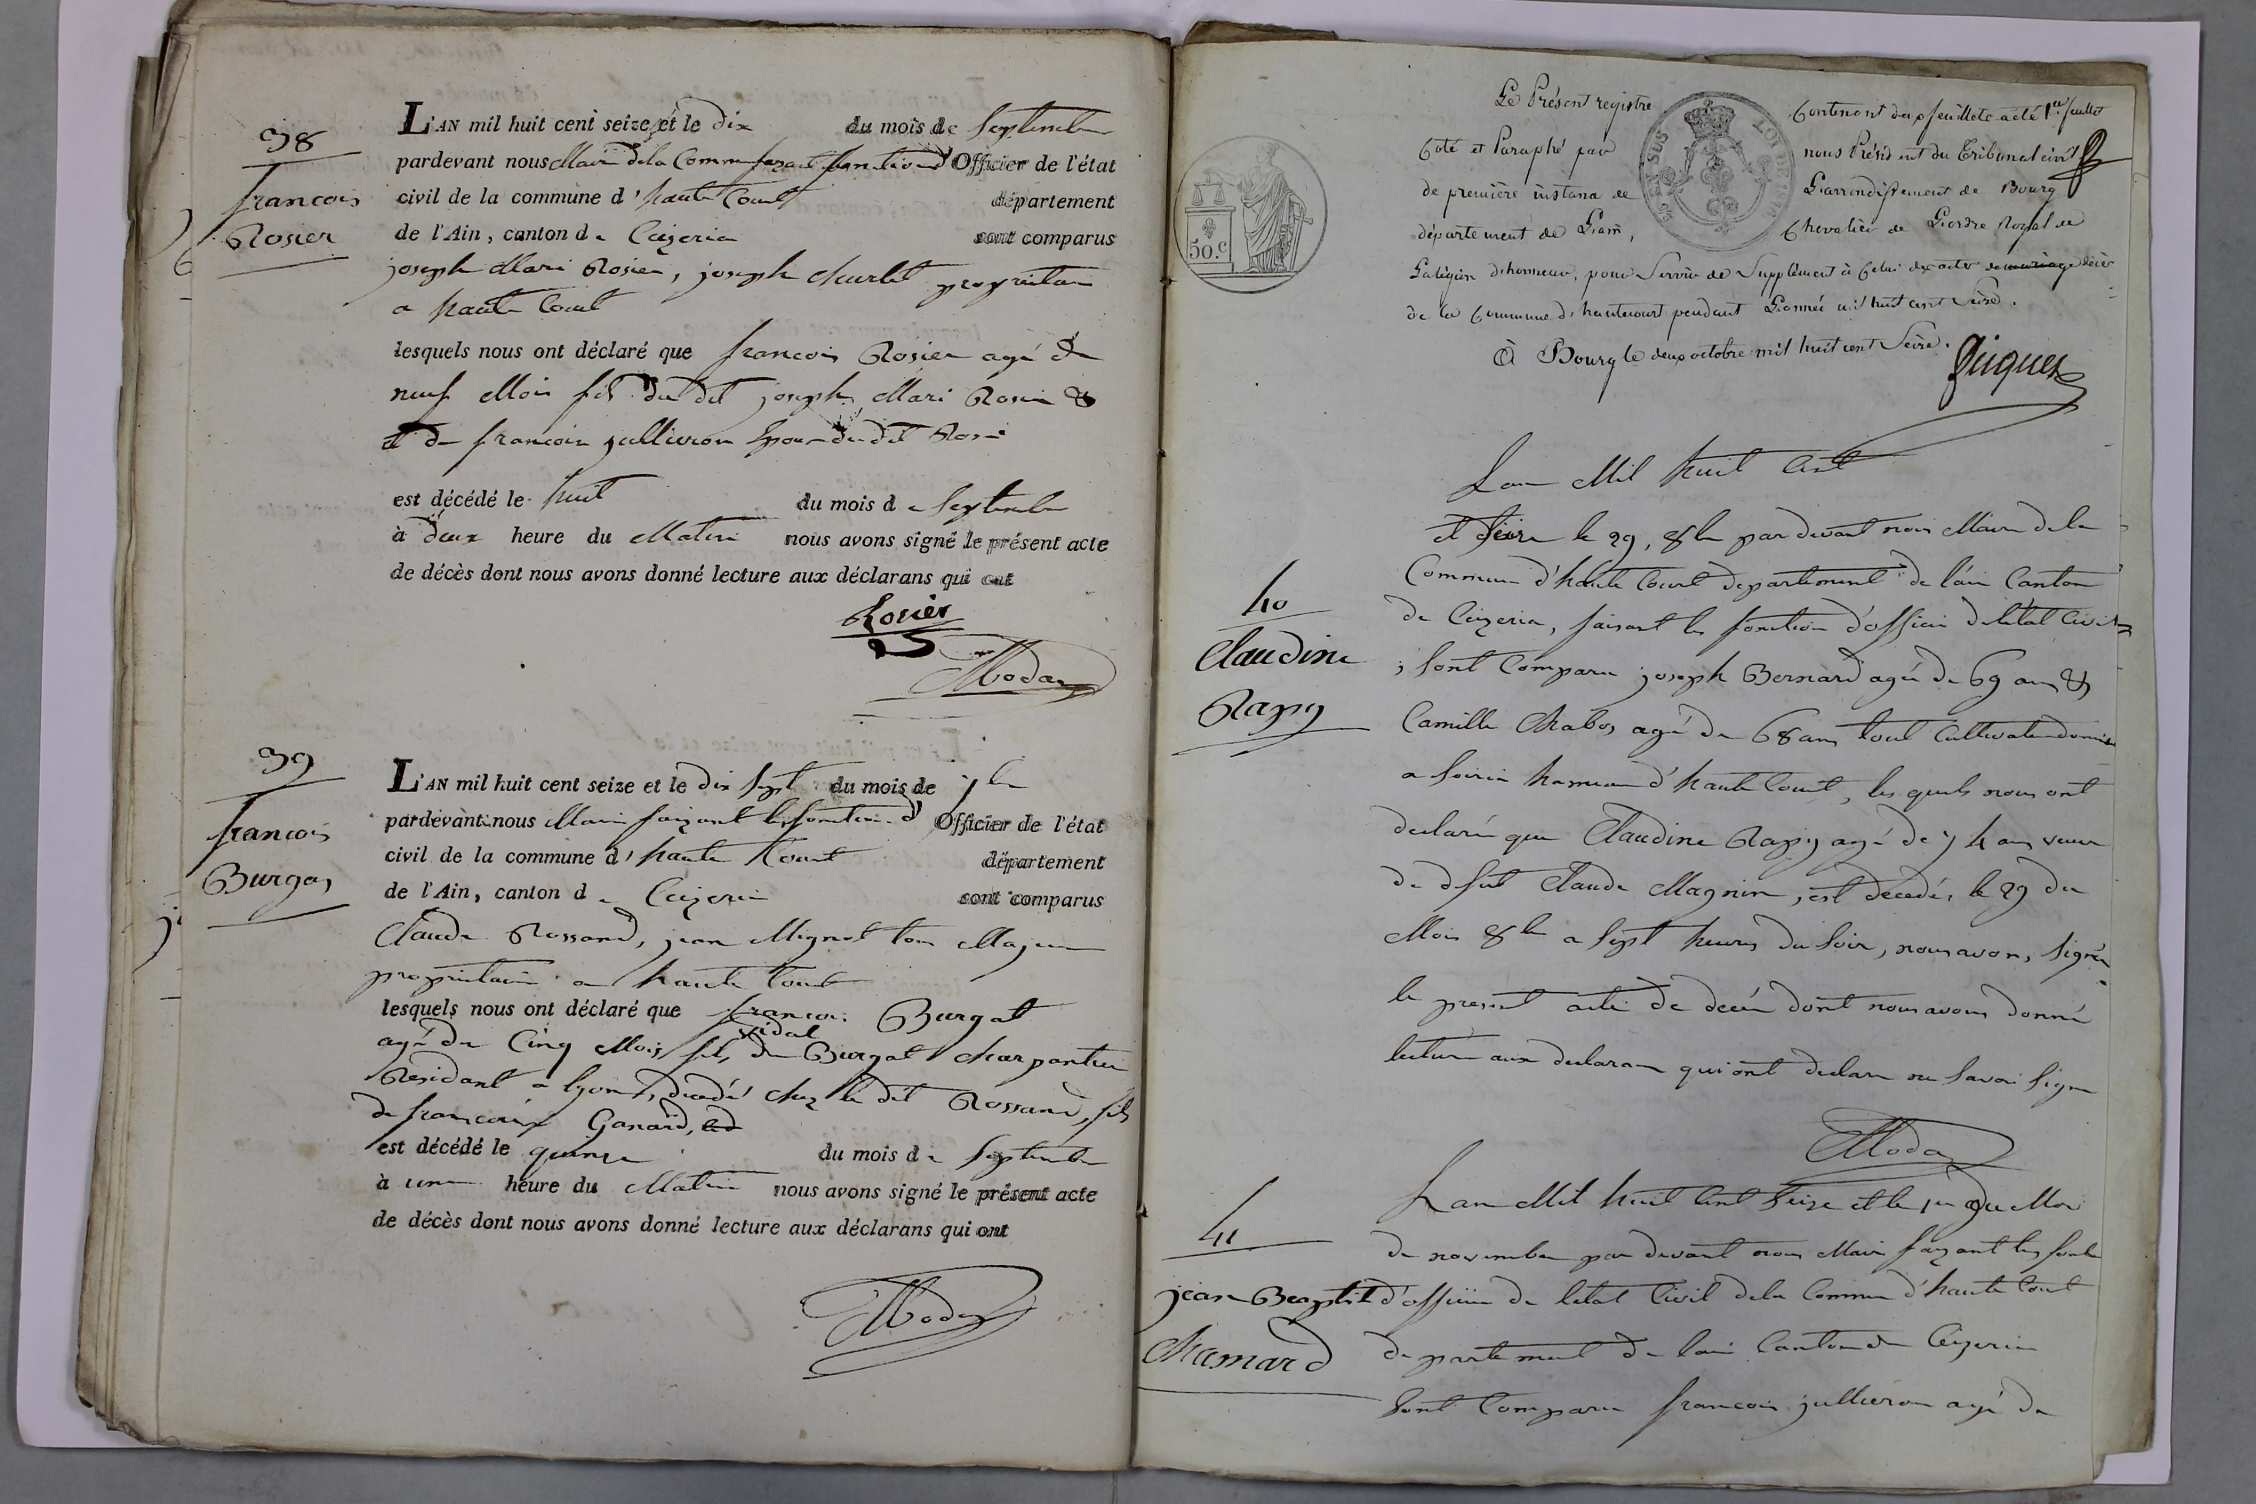 38
francois
Rosier
L'AN mil huit cent seize et le dix du mois de Septembre
pardevant nous Maire dela Commune fezant fonction d'Officier de l'état
civil de la commune d'haute Court département
de l'Ain, canton de Ceizeria sont comparus
joseph Mari Rosier, joseph Churlet proprietair
a haute Court
lesquels nous ont déclaré que francois Rosier agé de
neuf Mois fils du dit joseph Mari Rosier &
et de francoise jullieron Epouse du dit Rosier
est décédé le huit du mois de Septembre
à deux heure du Matin nous avons signé le présent acte
de décès dont nous avons donné lecture aux déclarans qui ont
Rosier
Moda
39
francois
Burgas
L'AN mil huit cent seize et le dix sept du mois de 7bre
pardevant nous Maire faizant les fonctions d'Officier de l'état
civil de la commune d'haute Court département
de l'Ain, canton de Ceizeria sont comparus
Claude Rossand, jean Mignot tous Majeurs
proprietaire a haute Court
lesquels nous ont déclaré que francois Burgat
vidal
agé de Cinq Mois fils de Burgat charpantier
Residant a lyon, decedé chez le dit Rossand, fils
de francoise Ganard,
est décédé le quinze du mois de Septembre
à une heure du Matin nous avons signé le présent acte
de décès dont nous avons donné lecture aux déclarans qui ont
Moda
Le Présent registre Contenant deux feuillets coté 1er feuillet
Coté et Paraphé par nous Président du Tribunal civil
de première instance de L'arrondissement de Bourg
département de L'ain, Chevalier de L'ordre Royal de
La légion d'honneur, pour Servir de Supplément à Celui des actes de mariage décès
de la Commune d'hautecourt pendant L'année mil huit cent Seize.
À Bourg le deux octobre mil huit cent Seize.
Piquet
50.C
EN SUS
LOI DE 1816
40
Claudine
Rapy
Lan Mil huit Cent
et Seize le 29, 8bre par devant nous Maire de la
Commune d'haute Court departement de l'ain Canton
de Ceizeria, faisant les fonction d'officier de letat Civil
; Sont Comparu joseph Bernard agé de 69 ans &
Camille Chabos agé de 68 ans tout Cultivateur domicilié
a Soiria hameau d'haute Court, les quels nous ont
declaré que Claudine Rapy agé de 74 ans veuve
de defut Claude Magnin, est decedé, le 29 du
Mois 8bre a Sept heures du Soir, nous avons, Signée
le present acte de decée dont nous avons donné
lecture aux declarans qui ont declare ne Savoir Signe
Moda
41
jean Baptist
Chamard
Lan Mil huit Cent Seize et le 1er du Mois
de novembre par devant nous Maire fayzant les fonction
d'officier de letat Civil dela Commune d'haute Court
departement de lain Canton de Ceyzeria
Sont Comparu francois jullieron agé de